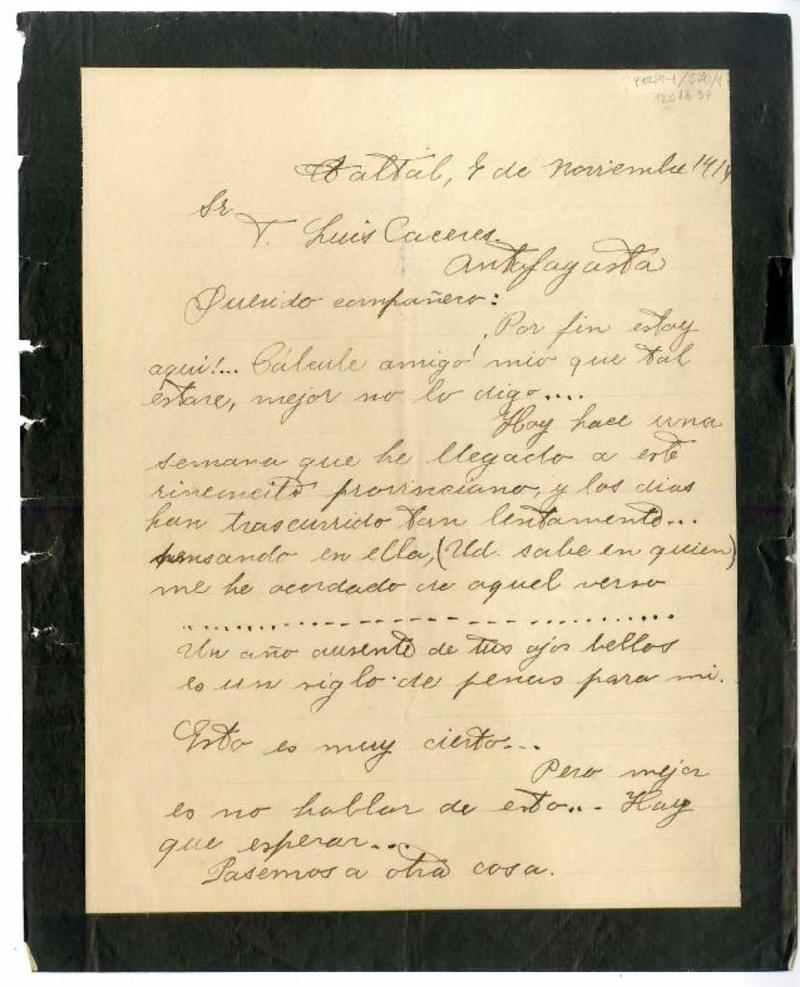 Taltal, 7 de Noviembre 191
Sr
T. Luis Caceres.
Antofagasta
Querido compañero:
Por fin estoy
aqui!... Cálcule amigo mio que tal
estare, mejor no lo digo....
Hoy hace una
semana que he llegado a este
rinconcito provinciano, y los dias
han trascurrido tan lentamente...
pensando en ella, (Ud. sabe en quien)
me he acordado de aquel verso
Un año ausente de tus ojos bellos
es un siglo de penas para mi.
Esto es muy cierto...
Pero mejor
es no hablar de esto... Hay
que esperar...
Pasemos a otra cosa.